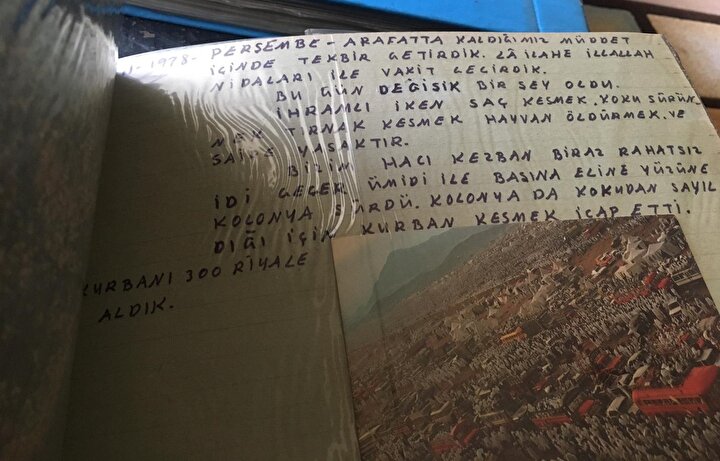 1-1978- PERŞEMBE - ARAFATTA KALDIĞIMIZ MÜDDET
İÇİNDE TEKBİR GETİRDİK. LÂ İLAHE İLLALLAH
NİDALARI İLE VAKİT GEÇİRDİK.
BU GÜN DEĞİŞİK BİR ŞEY OLDU.
İHRAMLI İKEN SAÇ KESMEK. KOKU SÜRÜN
MEK TIRNAK KESMEK HAYVAN ÖLDÜRMEK VE
SAİRE YASAKTIR.
BİZİM HACI KEZBAN BİRAZ RAHATSIZ
İDİ GEÇER ÜMİDİ İLE BAŞINA ELİNE YÜZÜNE
KOLONYA SÜRDÜ. KOLONYA DA KOKUDAN SAYIL
DIĞI İÇİN KURBAN KESMEK İCAP ETTİ.
KURBANI 300 RİYALE
ALDIK.